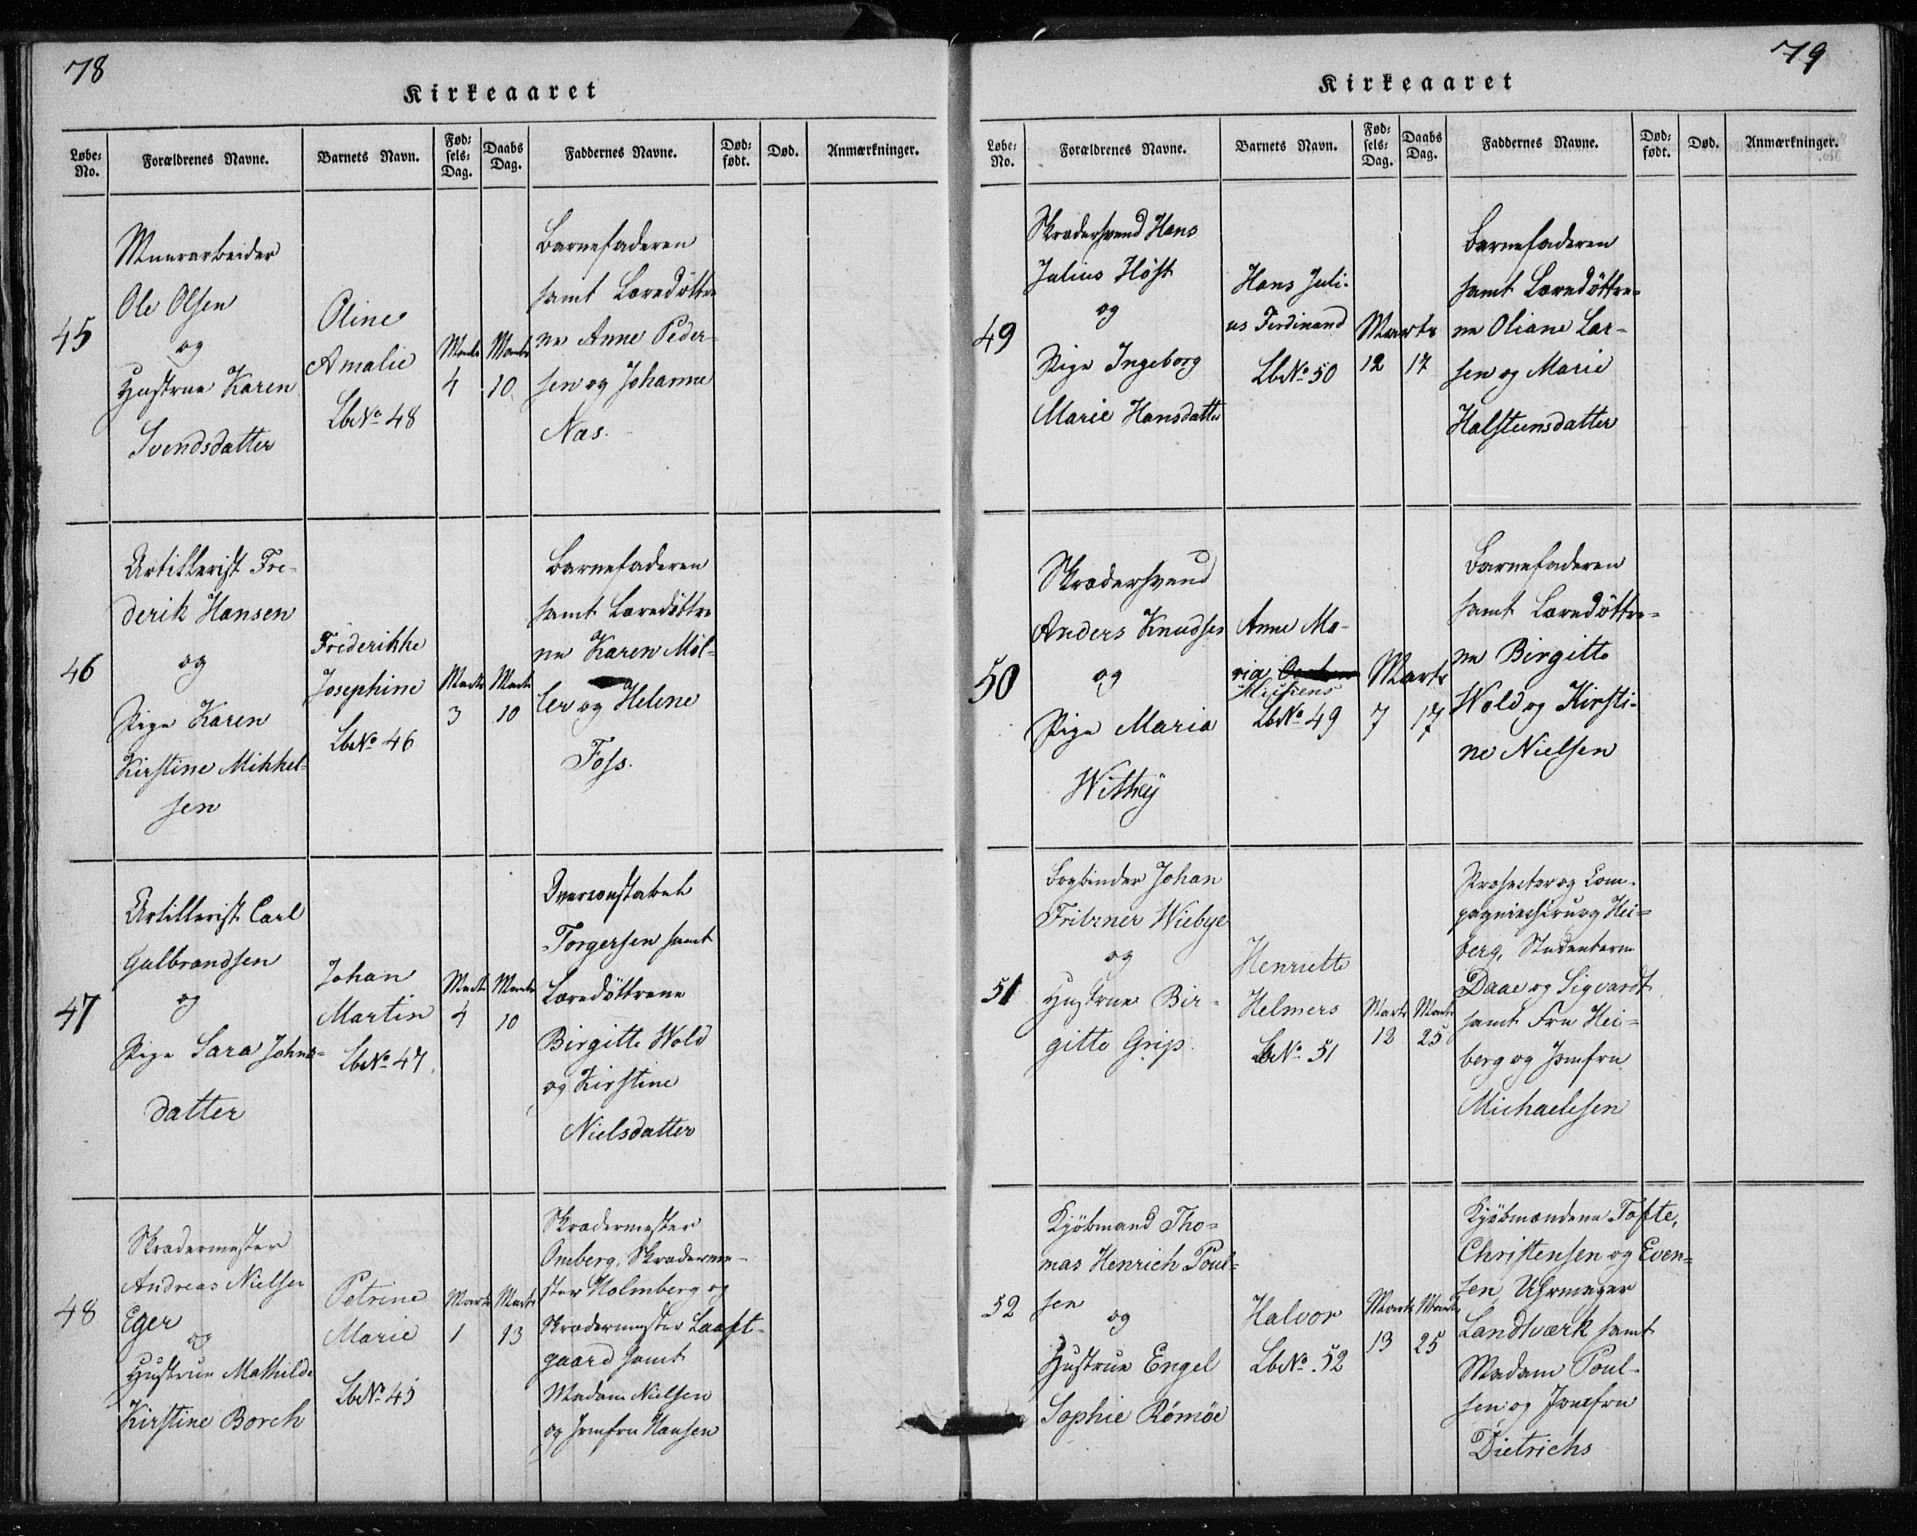 78
Kirkeaaret
Løbe-No.
Forældrenes Navne.
Barnets Navn.
Fød-sels-Dag.
Daabs Dag.
Faddernes Navne.
Død-født.
Død.
Anmærkninger.
45
Muurarbeider
Ole Olsen
og
Hustrue Karen
Svendsdatter
Oline
Amalie
LbNo 48
Marts
4
Marts
10
Barnefaderen
samt Læredöttre
ne Anne Peder-
sen og Johanne
Nas.
46
Artillerist Fre-
derik Hansen
og
Pige Karen
Kirstine Mikkel-
sen
Frederikke
Josephine
LbNo 46
Marts
3
Marts
10
Barnefaderen
samt Læredöttre
ne Karen Möl-
ler og Helene
Foss.
47
Artillerist Carl
Gulbrandsen
og
Pige Sara Johns-
datter
Johan
Martin
LbNo 47
Marts
4
Marts
10
Overconstabel
Torgersen samt
Læredöttrene
Birgitte Wold
og Kirstine
Nielsdatter
48
Skrædermester
Andreas Nielsen
Eger
og
Hustrue Mathilde
Kirstine Borch
Petrine
Marie
LbNo 45
Marts
1
Marts
13
Skrædermester
Oneberg, Skrædermе-
ster Holmberg og
Skrædermester Laaft-
gaard samt
Madam Nielsen
og Jomfru Hansen
79
Kirkeaaret
Løbe-No.
Forældrenes Navne.
Barnets Navn.
Fød-sels-Dag.
Daabs Dag.
Faddernes Navne.
Død-født.
Død.
Anmærkninger.
49
Skrædersvend Hans
Julius Höst
og
Pige Ingeborg
Marie Hansdatter
Hans Juli-
us Ferdinand
LbNo 50
Marts
12
17
Barnefaderen
samt Læredöttre-
ne Oliane Lar-
sen og Marie
Halsteensdatter
50
Skrædersvend
Anders Knudsen
og
Pige Maria
Withey
Anne Ma-
ria
LbNo 49
Marts
7
17
Barnefaderen
samt Læredöttre-
ne Birgitte
Wold og Kirsti-
ne Nielsen
51
Bogbinder Johan
Fritzner Wiebye
og
Hustrue Bir-
gitte Grip.
Henriette
Helmers
LbNo 51
Marts
12
Marts
25
Prosector og Com-
pagniechirurg Hei-
berg, Studenterne
Daae og Sigvardt
samt Fru Hei-
berg og Jomfru
Michaelesen
52
Kjöbmand Tho-
mas Henrich Poul-
sen
og
Hustrue Engel
Sophie Römöe
Halvor
LbNo 52
Marts
13
Marts
25
Kjöbmændene Tofte,
Christensen og Even-
sen Uhrmager
Landtværk samt
Madam Poul-
sen og Jomfru
Dietrichs